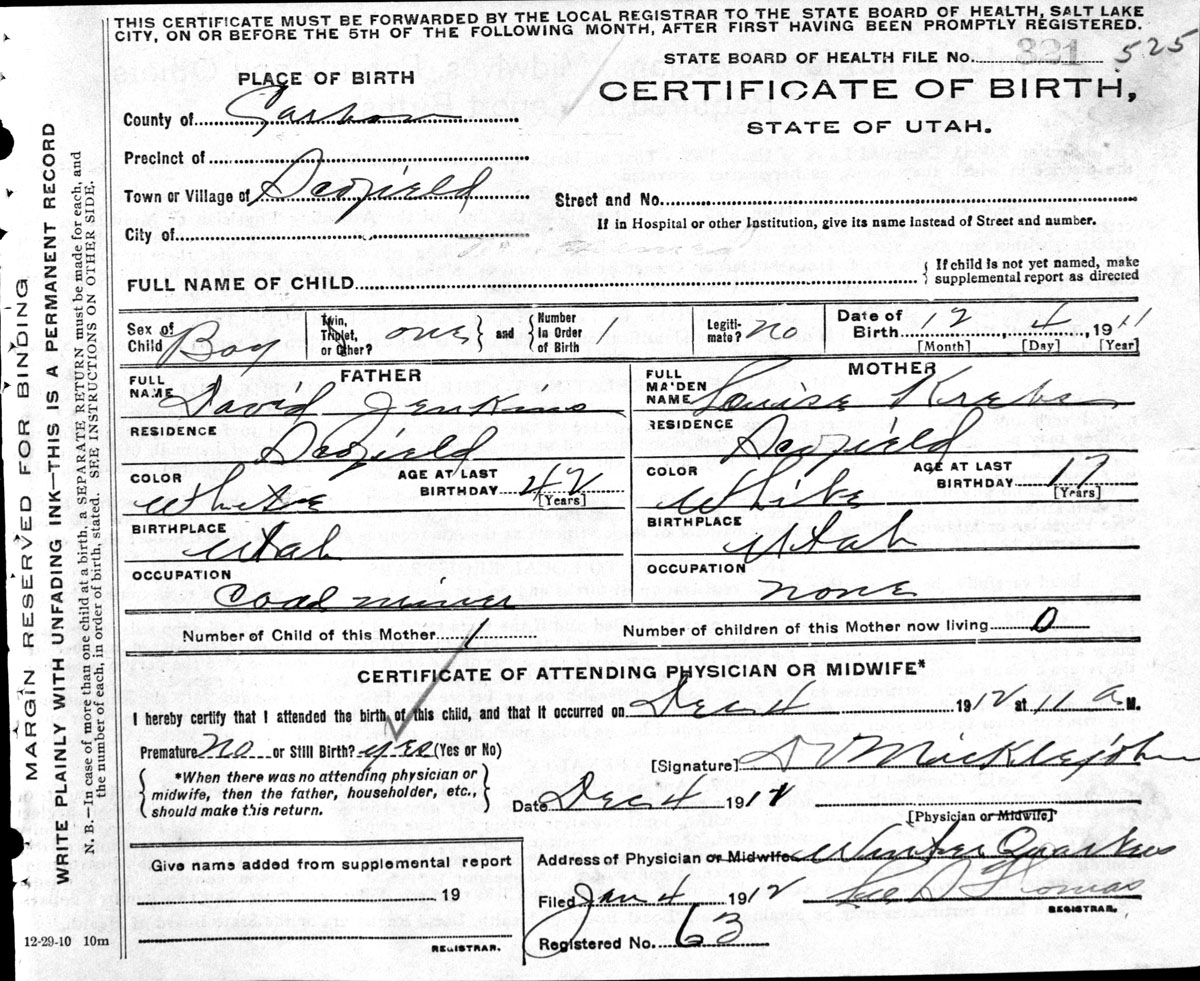 THIS CERTIFICATE MUST BE FORWARDED BY THE LOCAL REGISTRAR TO THE STATE BOARD OF HEALTH, SALT LAKE
CITY, ON OR BEFORE THE 5TH OF THE FOLLOWING MONTH, AFTER FIRST HAVING BEEN PROMPTLY REGISTERED.
STATE BOARD OF HEALTH FILE No. 321 525
PLACE OF BIRTH
CERTIFICATE OF BIRTH,
STATE OF UTAH.
County of
Precinct of
Town or Village of Scofield
Street and No.
If in Hospital or other Institution, give its name instead of Street and number.
City of
FULL NAME OF CHILD
If child is not yet named, make
supplemental report as directed
Sex of Child Boy
Twin, Triplet, or Other? one and Number in Order of Birth 1
Legitimate? no
Date of Birth 12 4 1911
[Month] [Day] [Year]
FATHER
FULL NAME David Jenkins
RESIDENCE Scofield
COLOR White
AGE AT LAST BIRTHDAY 42 [Years]
BIRTHPLACE Utah
OCCUPATION Coal miner
MOTHER
FULL MAIDEN NAME Louise Krebs
RESIDENCE Scofield
COLOR White
AGE AT LAST BIRTHDAY 17 [Years]
BIRTHPLACE Utah
OCCUPATION none
Number of Child of this Mother 1
Number of children of this Mother now living 0
CERTIFICATE OF ATTENDING PHYSICIAN OR MIDWIFE*
I hereby certify that I attended the birth of this child, and that it occurred on Dec 4 1912 at 11 a M.
Premature no or Still Birth? yes (Yes or No)
*When there was no attending physician or
midwife, then the father, householder, etc.,
should make this return.
[Signature]
Date Dec 4 1912
[Physician or Midwife]
Give name added from supplemental report
19
REGISTRAR.
Address of Physician or Midwife Winter Quarters
Filed Jan 4 1912 Thomas
REGISTRAR.
Registered No. 63
12-29-10 10m
MARGIN RESERVED FOR BINDING
WRITE PLAINLY WITH UNFADING INK—THIS IS A PERMANENT RECORD
N. B.—In case of more than one child at a birth, a SEPARATE RETURN must be made for each, and
the number of each, in order of birth, stated. SEE INSTRUCTIONS ON OTHER SIDE.